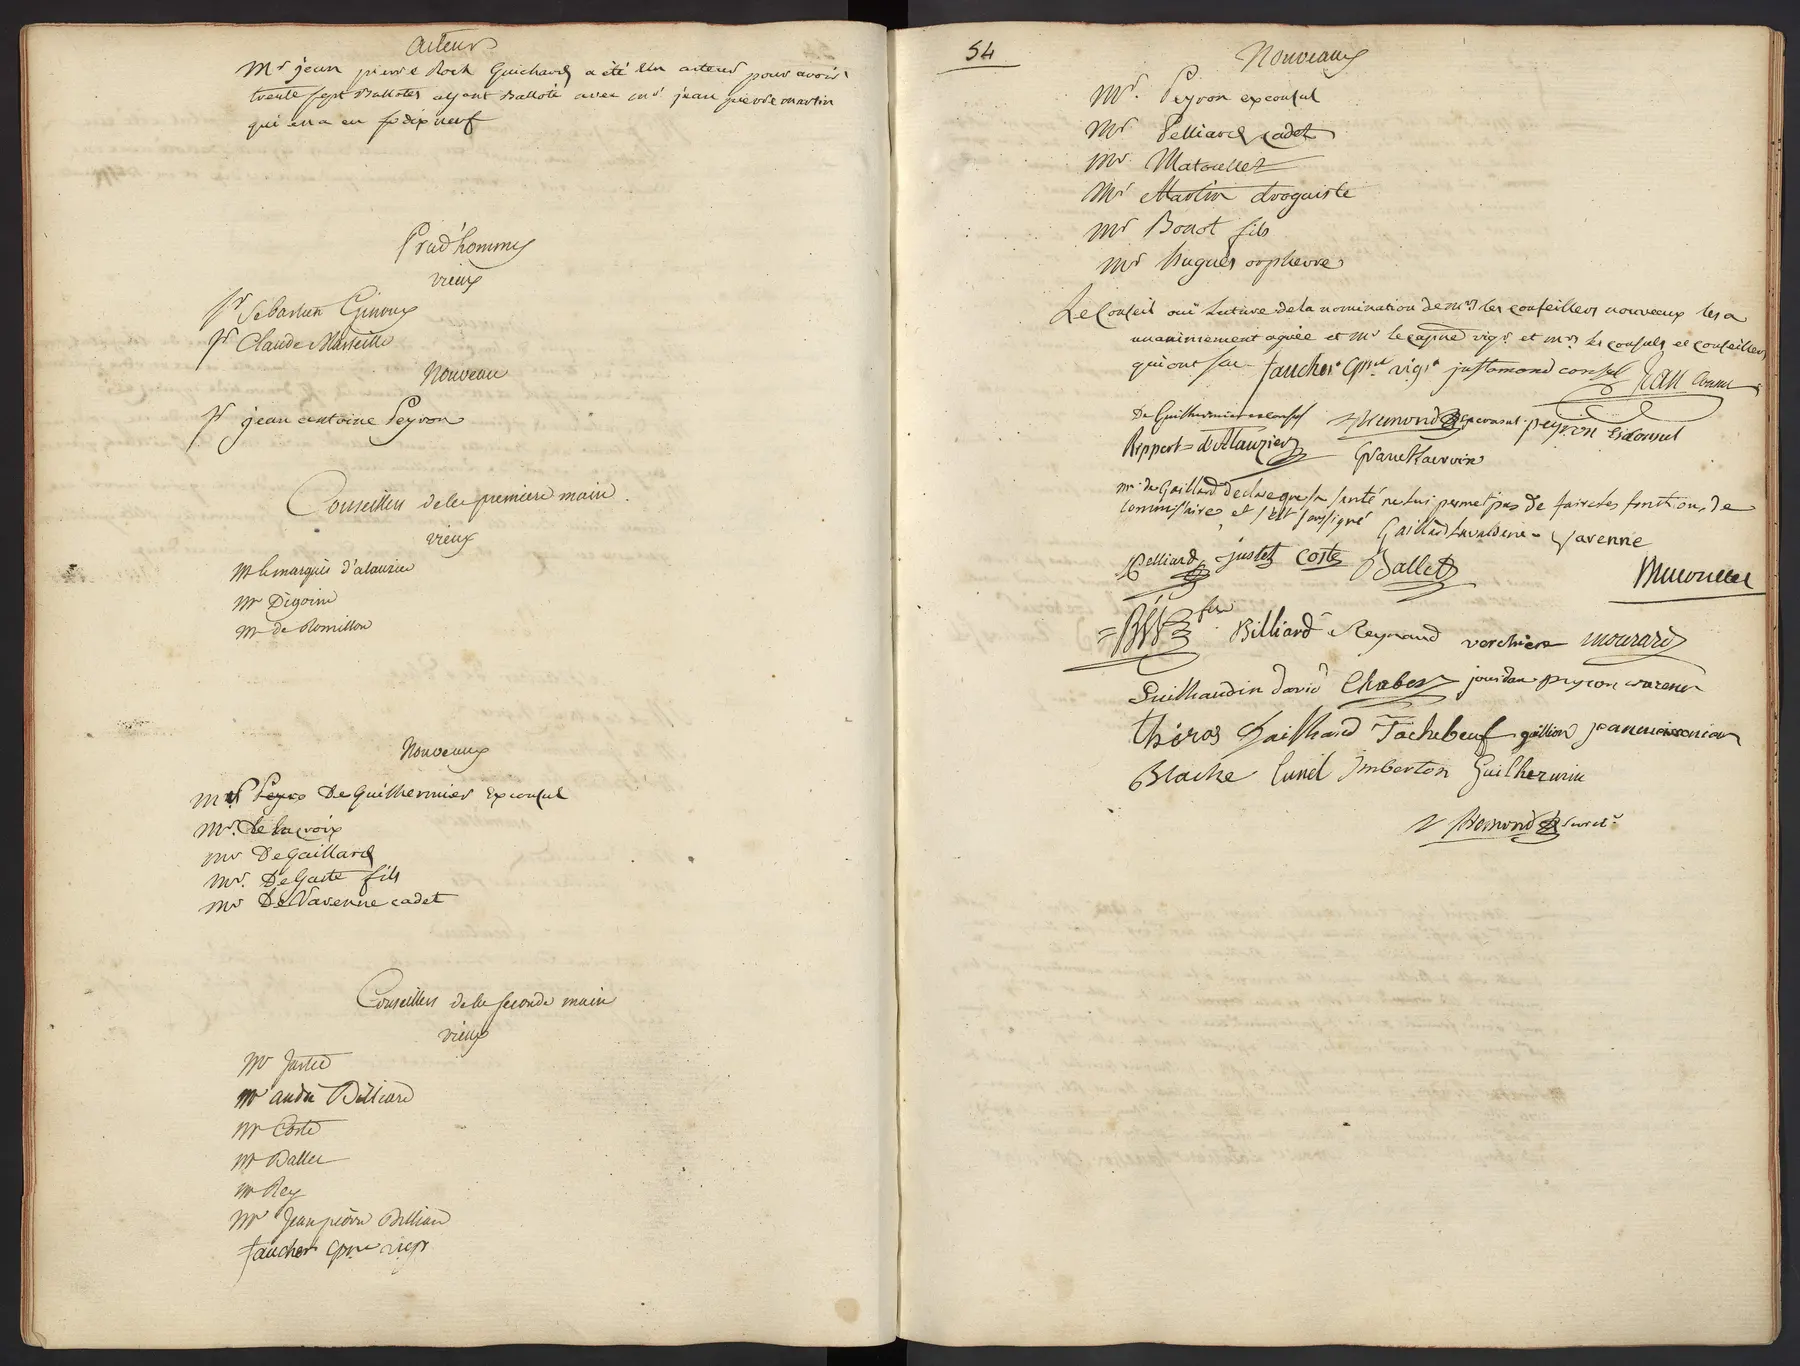 acteur
Mr jean pierre Roch Guichard a été Elu acteur pour avoir
trente sept Ballotes ayant Balloté avec mr jean pierre martin
qui en a eu dix neuf
Prud'hommes
vieux
sr Sebastien Giroux
sr Claude Marseille
Nouveau
sr jean antoine Peyron
Conseillers de la premiere main
vieux
Mr le marquis d'alauzier
Mr Digoine
Mr de Romillon
Nouveaux
Mr DeGuilhermier Exconsul
Mr. De la croix
Mr DeGaillard
Mr. DeGaste fils
Mr De Varenne cadet
Conseillers de la seconde main
vieux
Mr Juste
Mr andré Billiard
Mr Coste
Mr Ballet
Mr Rey
Mr Jean pierre Billiard
faucher vigr
54
Nouveaux
Mr. Peyron exconsul
Mr Pelliard cadet
Mr Matoullet
Mr Martin droguiste
Mr Bonot fils
Mr hugues orphevre
Le Conseil oui lecture de la nomination de mrs les conseillers nouveaux les a
unanimement agréé et Mr le vigr et mrs les consuls et conseillers
qui ont su faucher vigr justamond consul Jean Consul
De Guilhermier exconsul exconsul peyron Exconsul
Rippert = d'Alauzier
mr de Gaillard declare que sa santé ne lui permet pas de faire les fonctions de
Commissaire et s'est soussigné Gaillard Lavaldene - Varenne
Pelliard juste Coste Ballet
Billiard Reynaud verchiere mourard
Guilhaudin david Chaber jourdan peyron
thiros Gailhard Tachebeuf gaillion
Blache Cunel Imberton Guilhermin
Remond